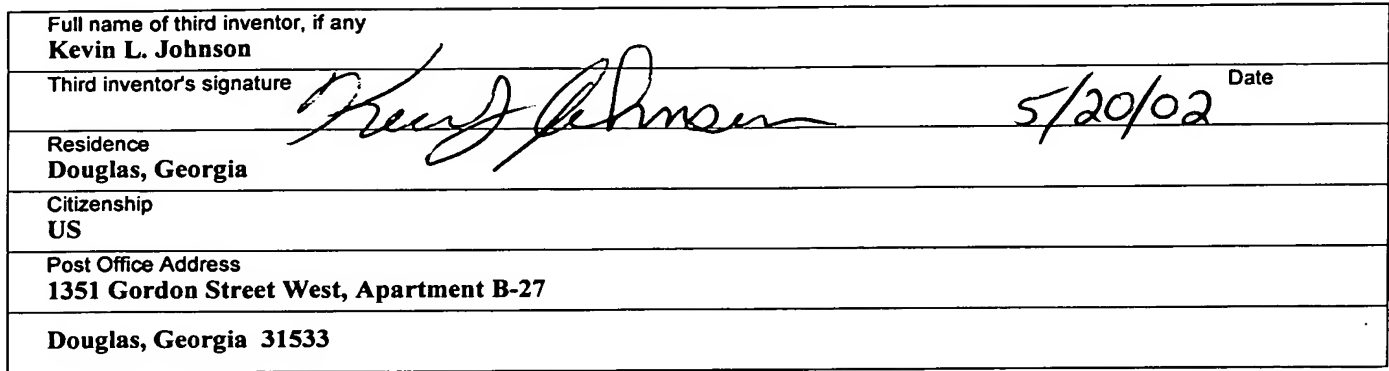 Full name of third inventor, if any
Kevin L. Johnson
Third inventor's signature Kevin L Johnson 5/20/02 Date
Residence
Douglas, Georgia
Citizenship
US
Post Office Address
1351 Gordon Street West, Apartment B-27
Douglas, Georgia 31533